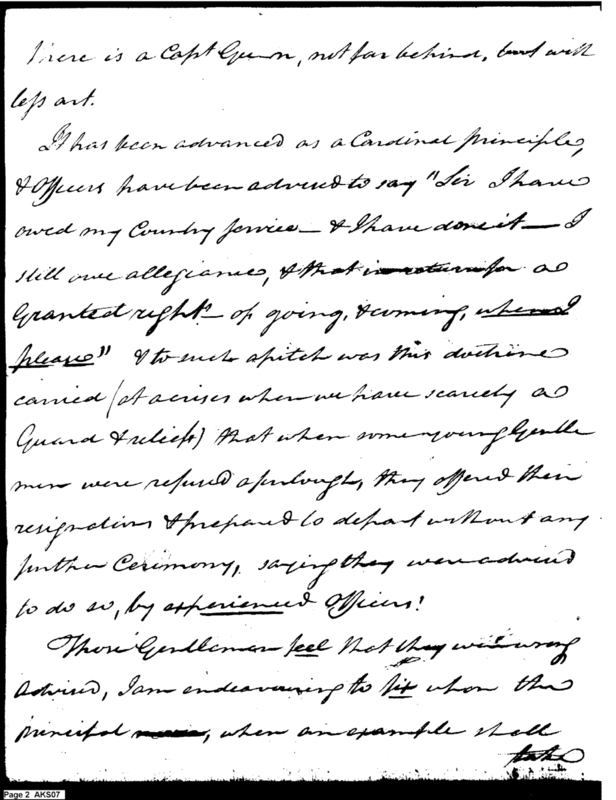 There is a Capt Gunn, not far behind, but with
less art.
It has been advanced as a Cardinal principle,
& Officers have been advised to say "Sir I have
owed my Country service — & I have done it — I
still owe allegiance, & that in return for a
Granted right of going, & coming, when I
please" & to such a pitch was this doctrine
carried (at a crises when we have scarcely a
Guard & relief) that when some young Gentle
men were refused a furlough, they offered their
resignations & prepared to depart without any
further Ceremony, saying they were advised
to do so, by experienced Officers!
Those Gentlemen feel that they were wrong
advised, I am endeavouring to fix upon the
principal, when an example shall
take
Page 2 AKS07